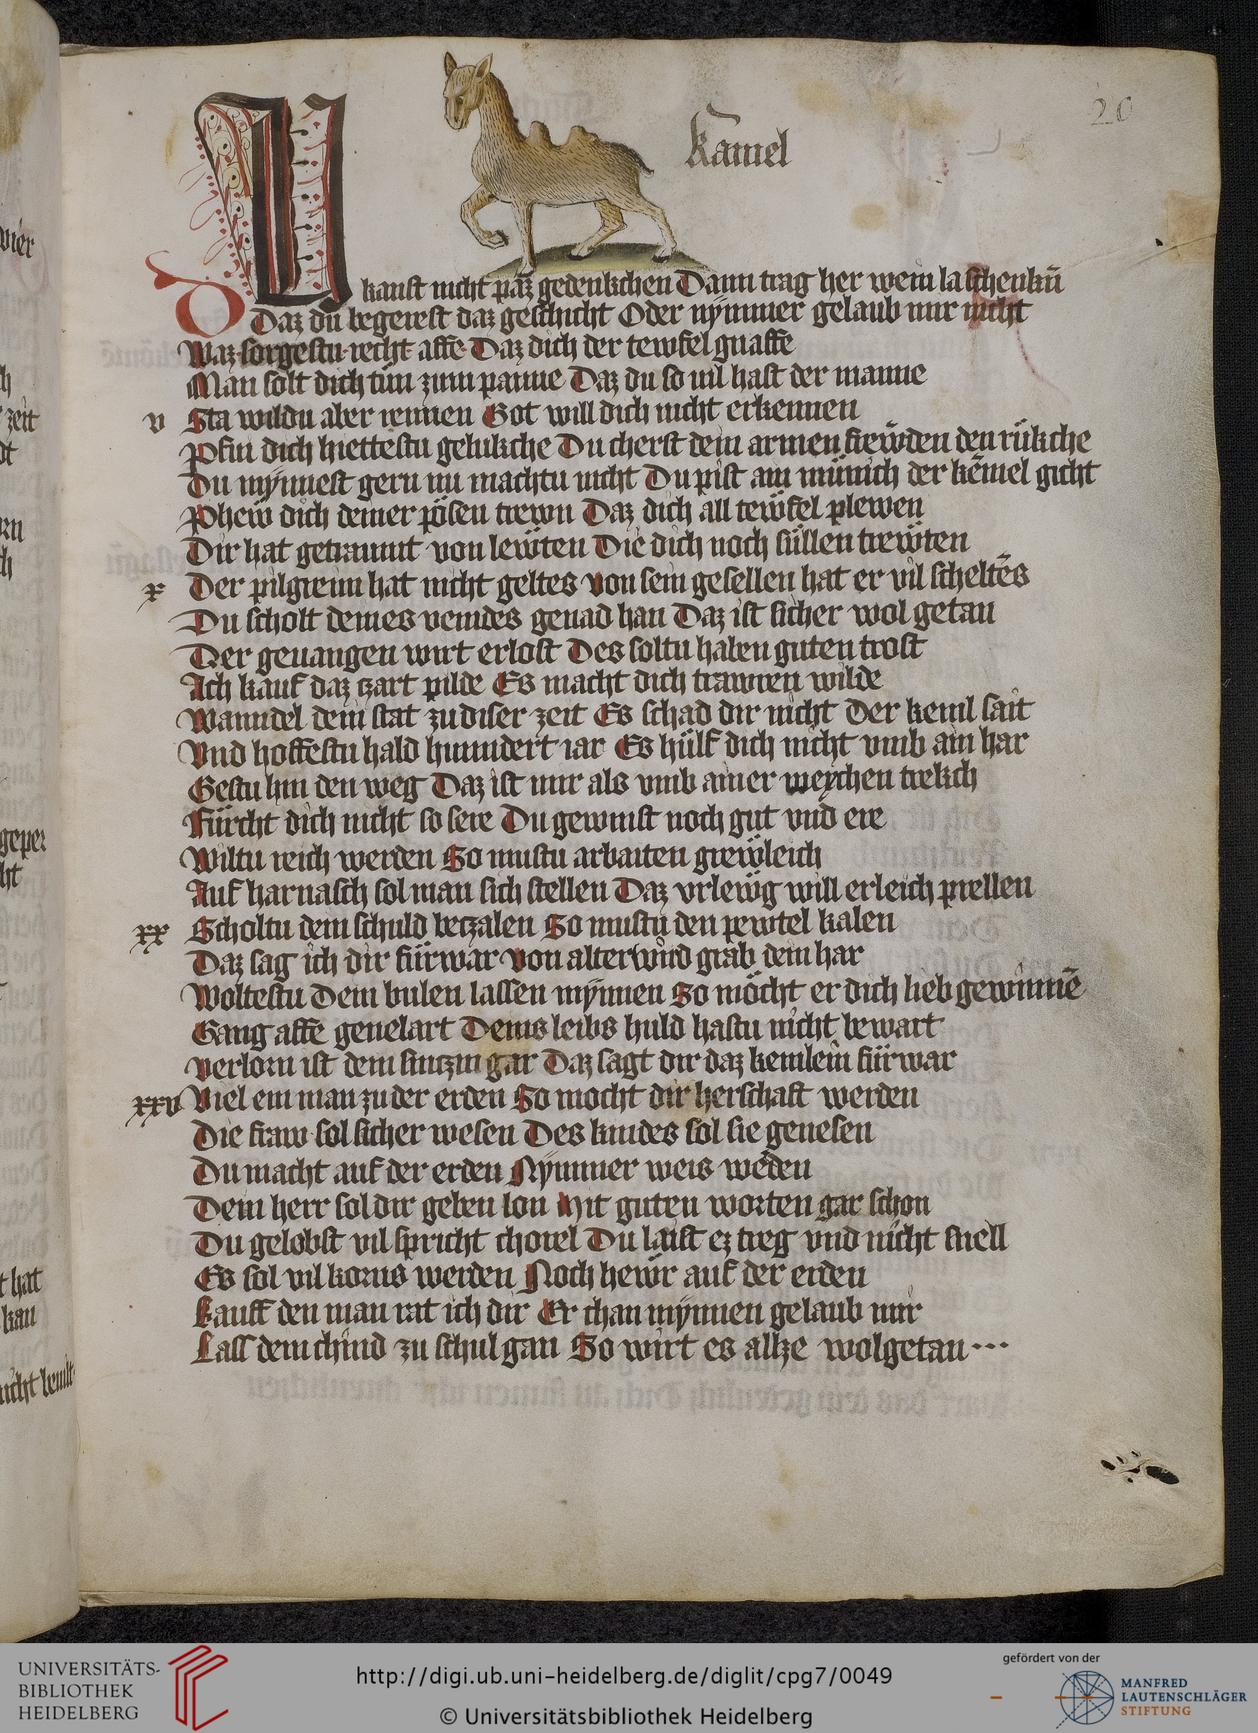 20
kamel
DU kanst nicht paz gedenkchen Dann trag her wein la schenkñ
Daz du begerest daz geschicht Oder nymmer gelaub mir nicht
Waz sorgestu recht affe Daz dich der tewfel gnaffe
Man solt dich tun zum panne Daz du so vil hast der manne
v Sta wildu aber rennen Got will dich nicht erkennen
Pfui dich hiettestu gelukche Du cherst dein armen frewden den rükche
Du mynnest gern nu machtu nicht Du pist ain münich der kemel gicht
Phew dich deiner pösen trewn Daz dich all tewfel plewen
Dir hat getraumt von lewten Die dich noch süllen trewten
x Der pilgreim hat nicht geltes von sein gesellen hat er vil scheltes
Du scholt deines veindes genad han Daz ist sicher wol getan
Der geuangen wirt erlost Des soltu haben guten trost
Ich kauf daz czart pilde Es macht dich trawren wilde
Wanndel dein stat zu diser zeit Es schad dir nicht Der kemil sait
Vnd hoffestu hald hunndert iar Es hülf dich nicht vmb ain har
Gestu hin den weg Daz ist mir als vmb ainer weychen trekch
Fürcht dich nicht so sere Du gewinst noch gut vnd ere
Wiltu reich werden So mustu arbaiten grewleich
Auf harnasch sol man sich stellen Daz vrlewg will erleich prellen
xx Scholtu dein schuld beczalen So mustu den pewtel kalen
Daz sag ich dir fürwar von alter wird grab dein har
Woltestu Dein bulen lassen mynnen So möcht er dich lieb gewinnē
Gang affe geuelart Deins leibs huld hastu nicht bewart
verlorn ist dein sinczin gar Daz sagt dir daz kemlein fürwar
xxv Viel ein man zu der erden So mocht dir herschaft werden
Die fraw sol sicher wesen Des kindes sol sie genesen
Du macht auf der erden Nymmer weis weden
Dein herr sol dir geben lon Mit guten worten gar schon
Du gelobst vil spricht chotel Du laist ez treg vnd nicht snell
Es sol vil korns werden Noch hewr auf der erden
Kauff den man rat ich dir Er chan mynnen gelaub mir
Lass dein chind zu schul gan So wirt es allze wolgetan
UNIVERSITÄTS-
BIBLIOTHEK
HEIDELBERG
http://digi.ub.uni-heidelberg.de/diglit/cpg7/0049
© Universitätsbibliothek Heidelberg
gefördert von der
MANFRED
LAUTENSCHLÄGER
STIFTUNG